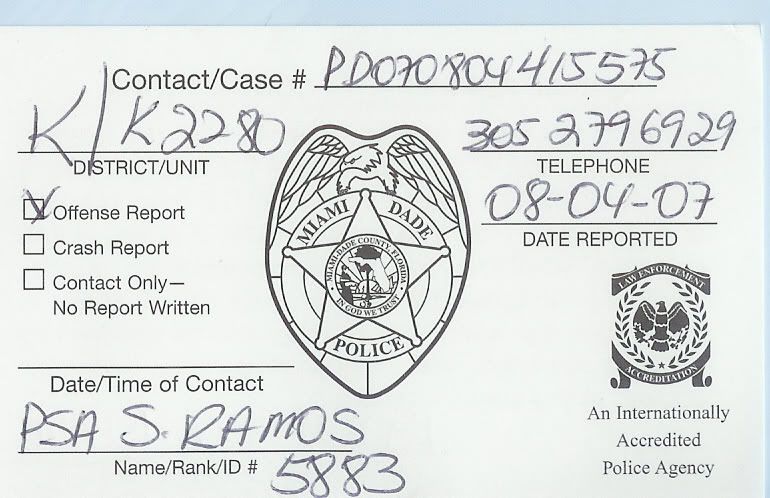 Contact/Case # PD070804415575
K/K2280
DISTRICT/UNIT
305 2796929
TELEPHONE
Offense Report
Crash Report
Contact Only—
No Report Written
08-04-07
DATE REPORTED
MIAMI DADE
MIAMI-DADE COUNTY, FLORIDA
IN GOD WE TRUST
POLICE
LAW ENFORCEMENT
ACCREDITATION
An Internationally
Accredited
Police Agency
Date/Time of Contact
PSA S. RAMOS
Name/Rank/ID # 5883